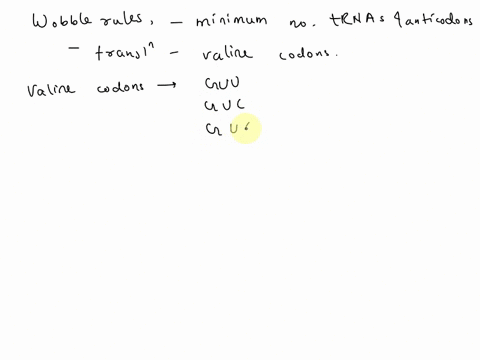 Wobble rules, - minimum no. tRNAs & anticodons
- translⁿ - valine codons.
Valine codons → GUU
GUC
GU